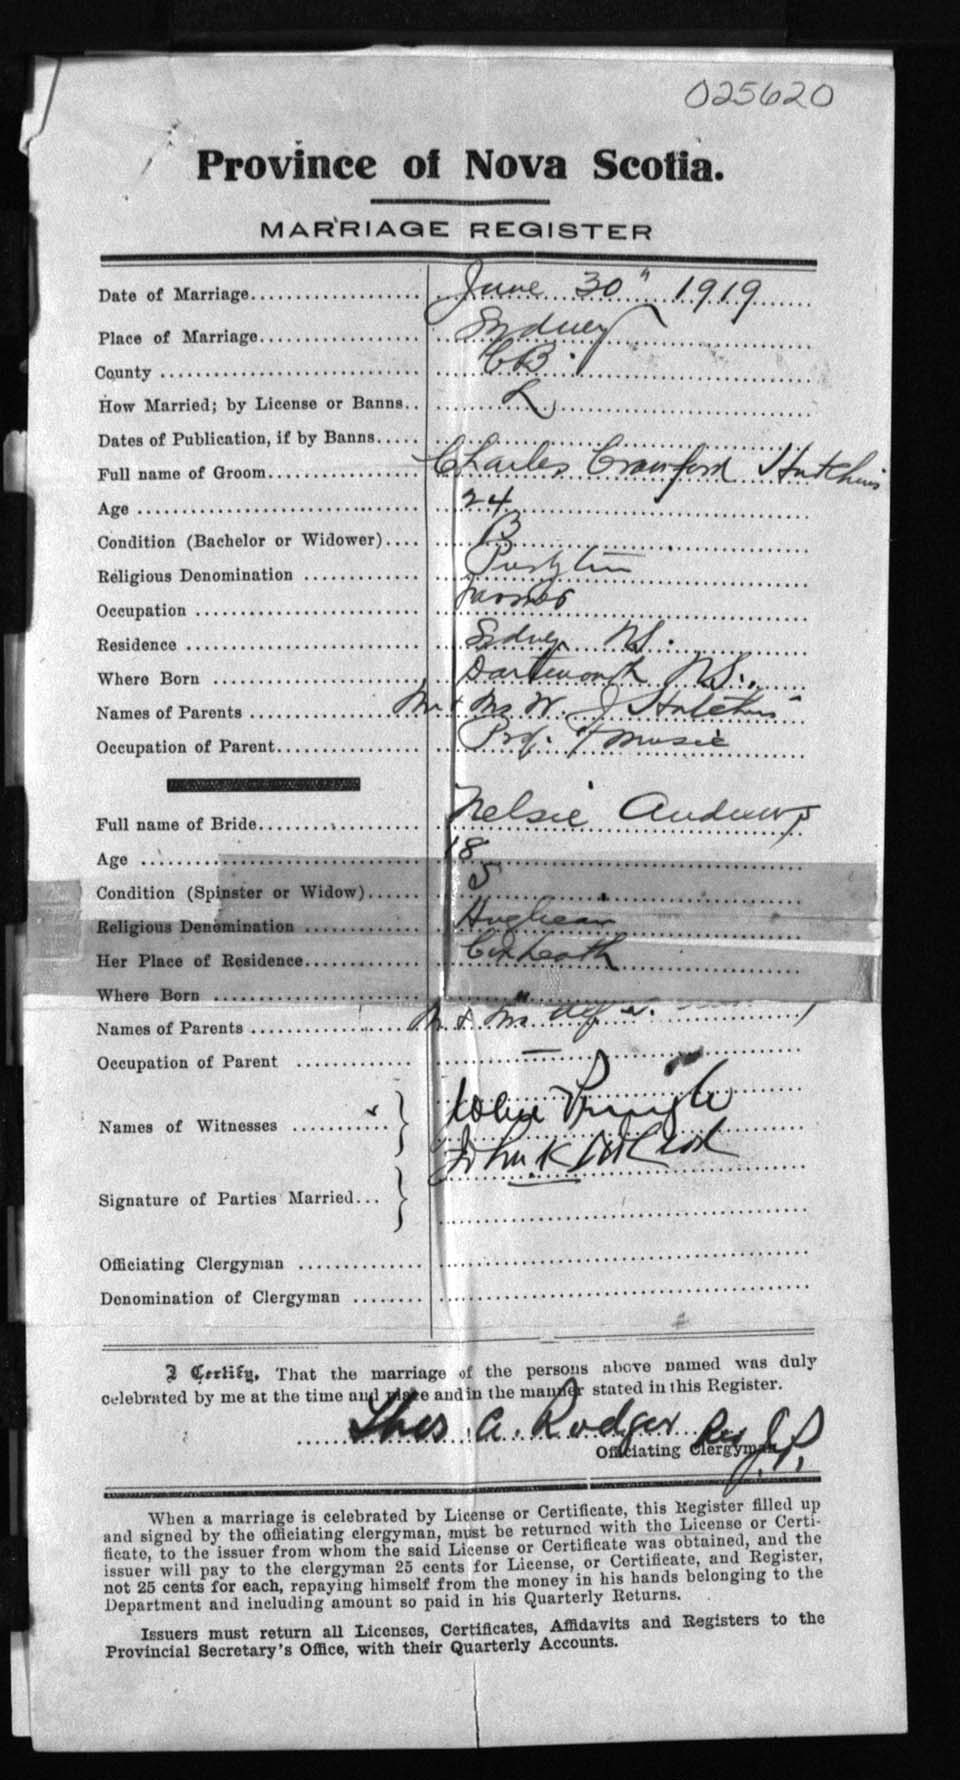 025620
Province of Nova Scotia.
MARRIAGE REGISTER
Date of Marriage June 30" 1919
Place of Marriage Sydney
County CB.
How Married; by License or Banns L
Dates of Publication, if by Banns
Full name of Groom Charles Crawford Hutchins
Age 24
Condition (Bachelor or Widower) B
Religious Denomination
Occupation
Residence Sydney N.S.
Where Born Dartmouth N.S.
Names of Parents Mr & Mrs W. J Hutchins
Occupation of Parent Prof. of Music
Full name of Bride Nelsie Andrews
Age 18
Condition (Spinster or Widow) S
Religious Denomination Anglican
Her Place of Residence Coxheath
Where Born "
Names of Parents Mr & Mrs
Occupation of Parent —
Names of Witnesses John K
Signature of Parties Married
Officiating Clergyman
Denomination of Clergyman
I Certify, That the marriage of the persons above named was duly
celebrated by me at the time and place and in the manner stated in this Register.
Thos A. Rodger J.P.
Officiating Clergyman
When a marriage is celebrated by License or Certificate, this Register filled up
and signed by the officiating clergyman, must be returned with the License or Certi-
ficate, to the issuer from whom the said License or Certificate was obtained, and the
issuer will pay to the clergyman 25 cents for License, or Certificate, and Register,
not 25 cents for each, repaying himself from the money in his hands belonging to the
Department and including amount so paid in his Quarterly Returns.
Issuers must return all Licenses, Certificates, Affidavits and Registers to the
Provincial Secretary's Office, with their Quarterly Accounts.